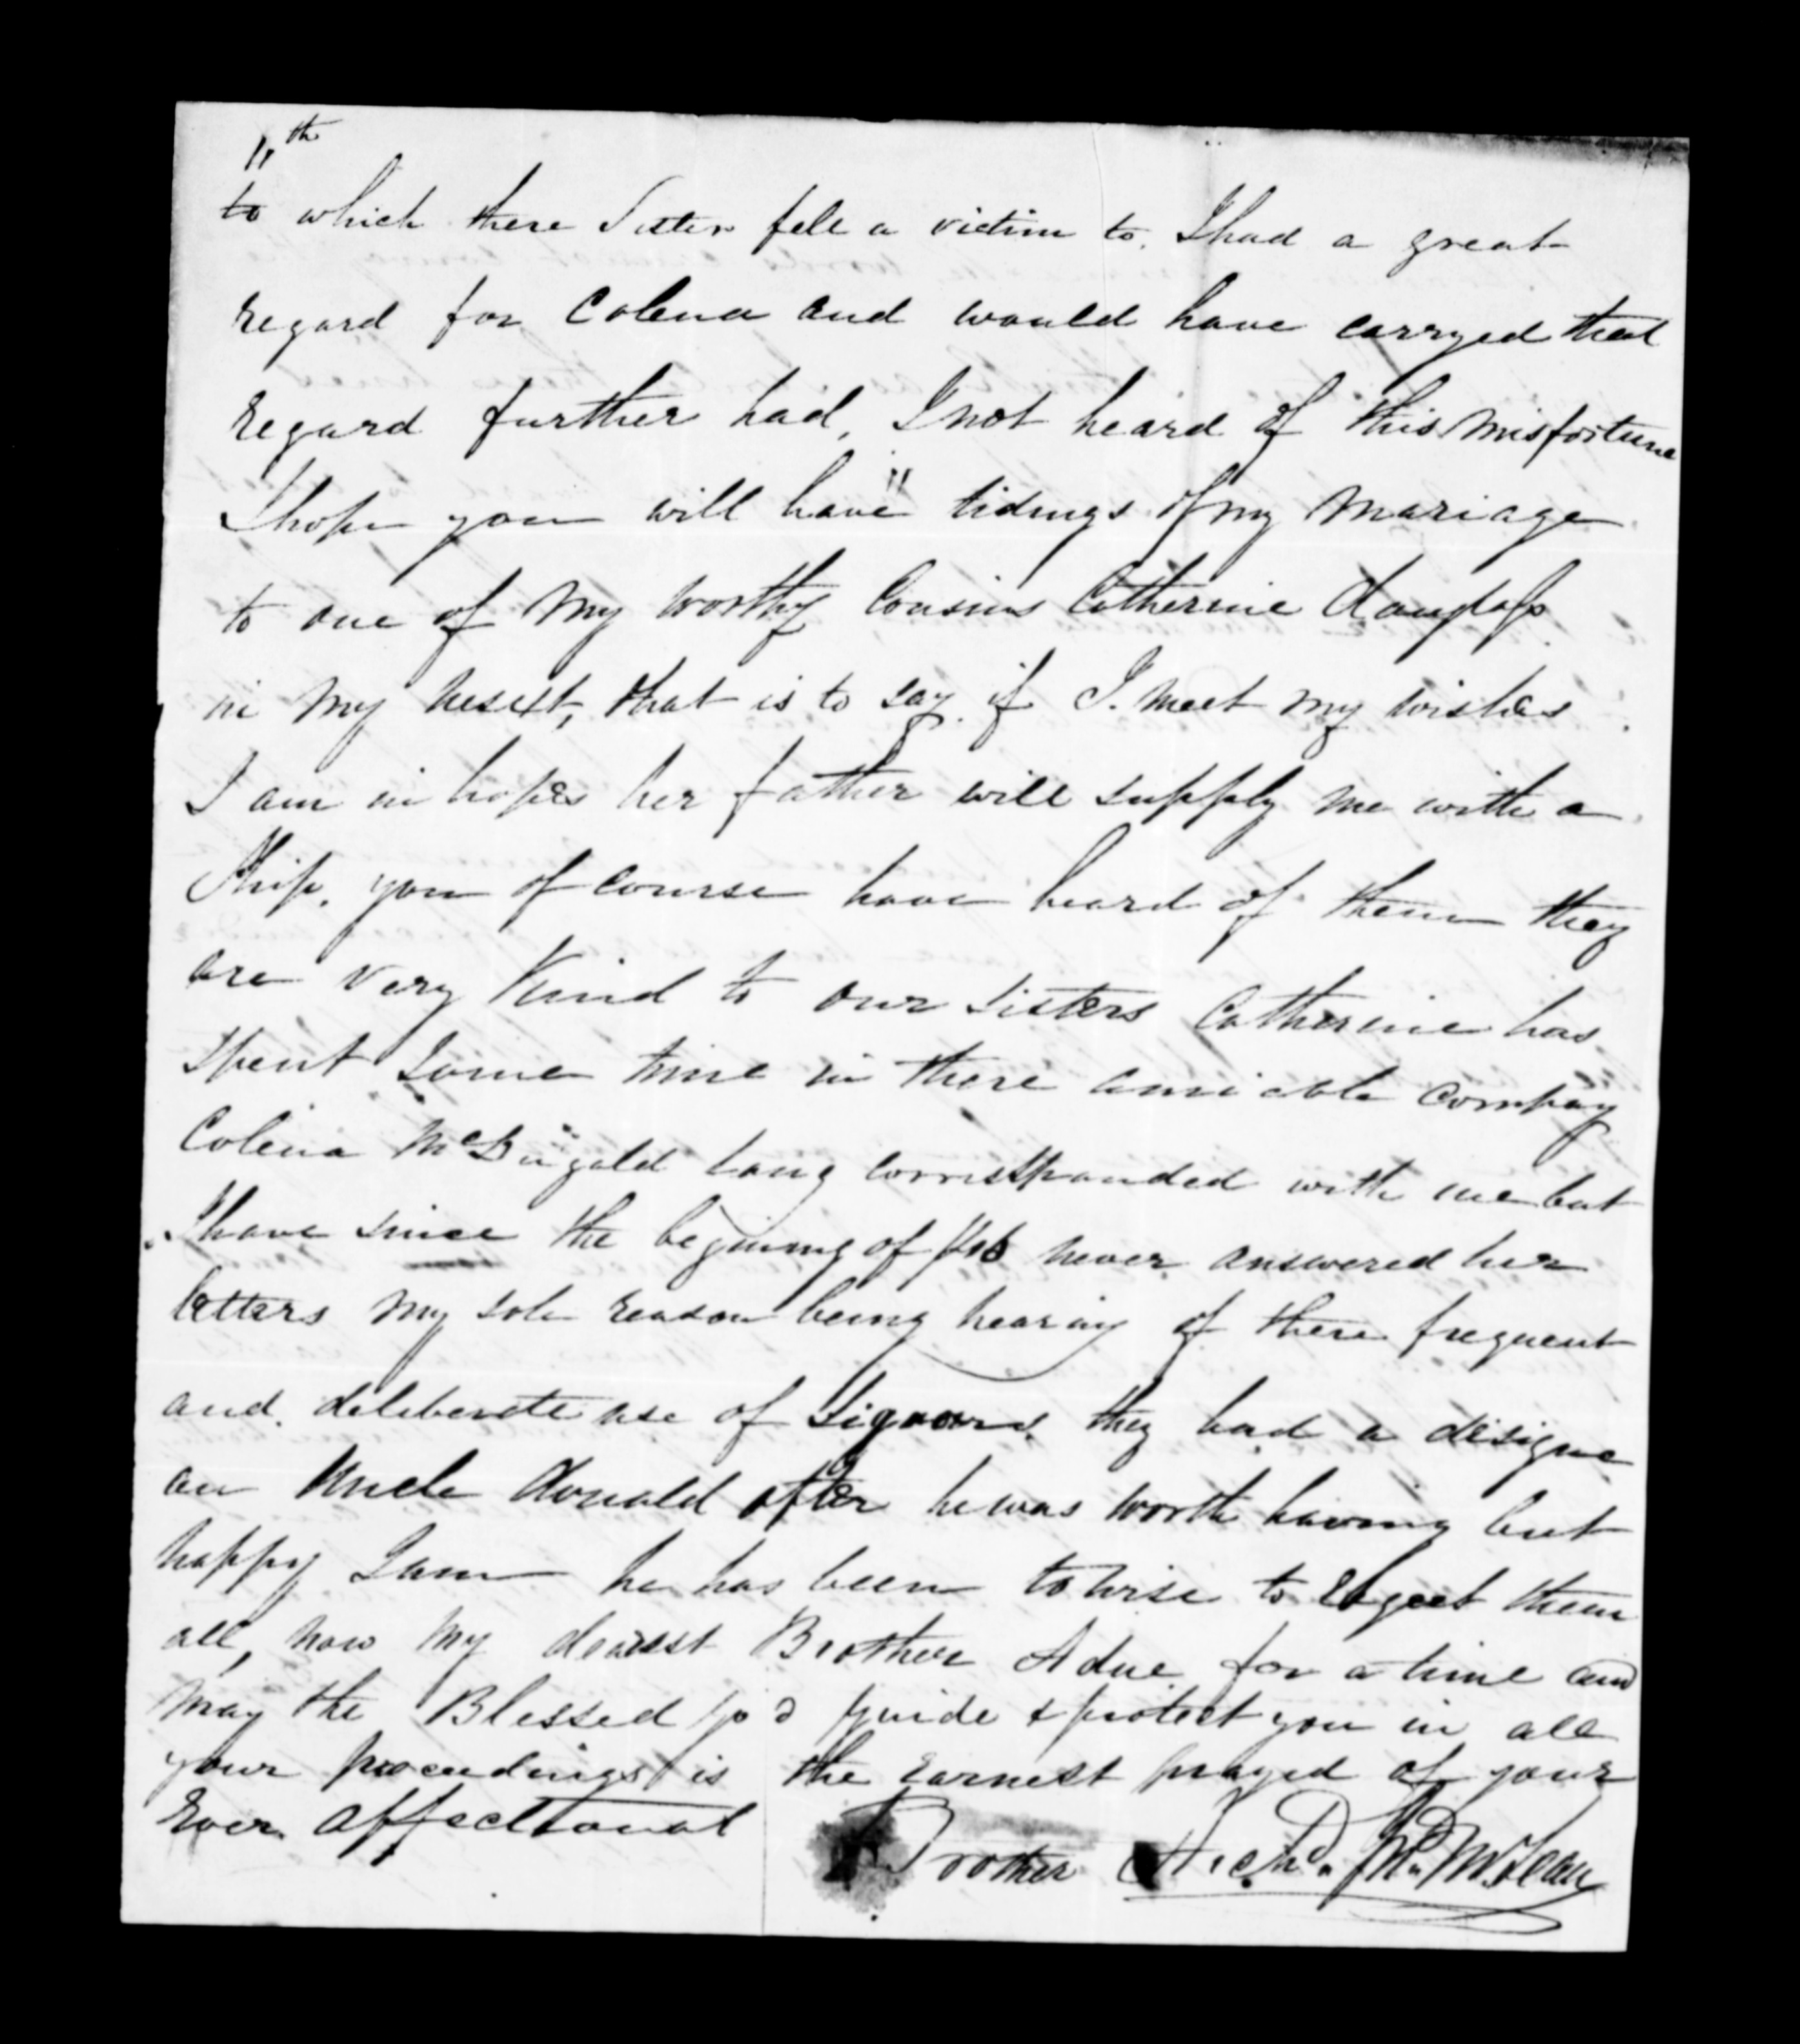 11th
to which there Sister fell a victim to. I had a great
regard for Colena and would have carryed that
regard further had, I not heard of this misfortune
I hope you will have tidings of my mariage
to one of my worthy Cousins Catherine
in my nesext, that is to say if I. meet my wishes
I am in hopes her father will supply me with a
Ship. you of course have heard of them they
are very Kind to our Sisters Catherine has
spent some time in there amicable compay
Colena McDugald long corrisspanded with me but
I have since the begining of never answered her
letters my sole reason being hearing of there frequent
and. deliberate use of Liquors they had a designe
on Uncle Donald after he was worth having but
happy I am he has been to wise to them
all, now my dearest Brother Adue for a time and
may the Blessed God Guide & protect you in all
your proceedings is the earnest prayed of your
Ever affectional Brother Archd. Jn. McLean